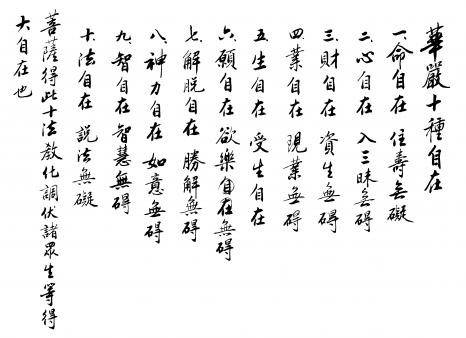 華嚴十種自在
一、命自在 住壽無礙
二、心自在 入三昧無碍
三、財自在 資生無碍
四、業自在 現業無碍
五、生自在 受生自在
六、願自在 欲樂自在無碍
七、解脱自在 勝解無碍
八、神力自在 如意無碍
九、智自在 智慧無碍
十、法自在 說法無礙
菩薩得此十法教化調伏諸眾生等得
大自在也